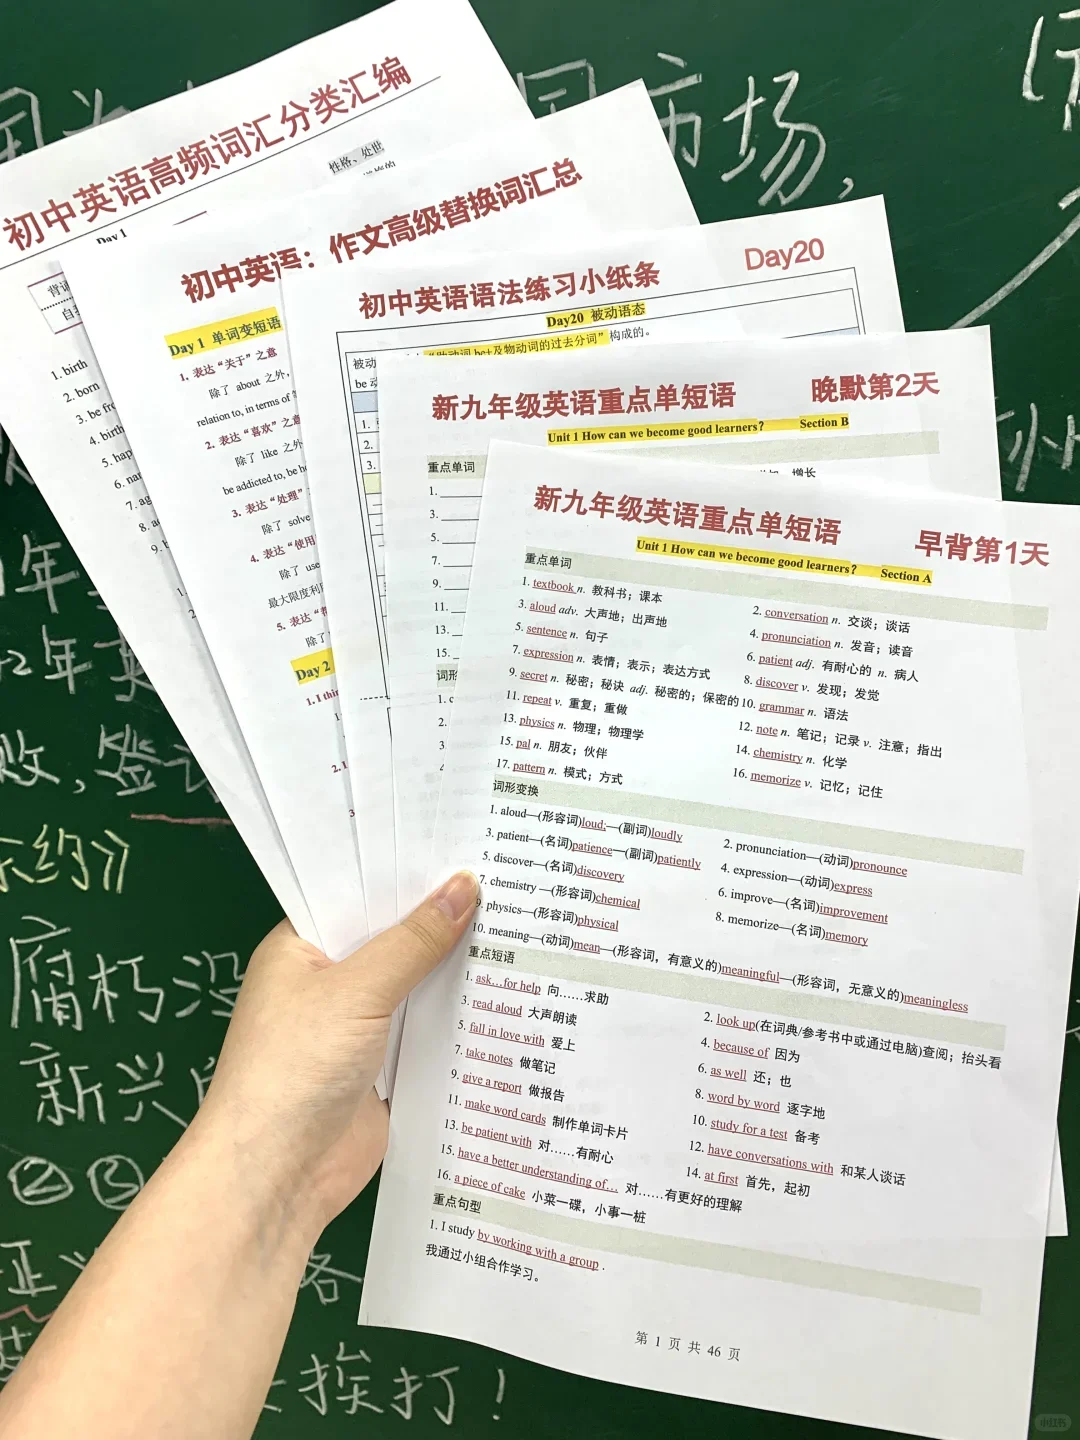 初中英语高频词汇分类汇编
性格、处世
Day 1
1. birth
2. born
4. birth
初中英语：作文高级替换词汇总
Day 1 单词变短语
1. 表达“关于”之意
除了 about 之外，
relation to, in terms of
2. 表达“喜欢”之意
除了 like 之外
be addicted to, be
3. 表达“处理”
除了 solve
4. 表达“使用
除了 use
最大限度利
5. 表达“
除了
Day 2
初中英语语法练习小纸条 Day20
Day20 被动语态
“助动词 be+及物动词的过去分词”构成的。
新九年级英语重点单短语 晚默第2天
Unit 1 How can we become good learners? Section B
重点单词
增长
1.
3.
5.
7.
9.
11.
13.
15.
新九年级英语重点单短语 早背第1天
Unit 1 How can we become good learners? Section A
重点单词
1. textbook n. 教科书；课本 2. conversation n. 交谈；谈话
3. aloud adv. 大声地；出声地 4. pronunciation n. 发音；读音
5. sentence n. 句子 6. patient adj. 有耐心的 n. 病人
7. expression n. 表情；表示；表达方式 8. discover v. 发现；发觉
9. secret n. 秘密；秘诀 adj. 秘密的；保密的 10. grammar n. 语法
11. repeat v. 重复；重做 12. note n. 笔记；记录 v. 注意；指出
13. physics n. 物理；物理学 14. chemistry n. 化学
15. pal n. 朋友；伙伴 16. memorize v. 记忆；记住
17. pattern n. 模式；方式
词形变换
1. aloud—(形容词)loud;—(副词)loudly 2. pronunciation—(动词)pronounce
3. patient—(名词)patience—(副词)patiently 4. expression—(动词)express
5. discover—(名词)discovery 6. improve—(名词)improvement
7. chemistry —(形容词)chemical 8. memorize—(名词)memory
9. physics—(形容词)physical
10. meaning—(动词)mean—(形容词，有意义的)meaningful—(形容词，无意义的)meaningless
重点短语
1. ask…for help 向……求助 2. look up(在词典/参考书中或通过电脑)查阅；抬头看
3. read aloud 大声朗读 4. because of 因为
5. fall in love with 爱上 6. as well 还；也
7. take notes 做笔记 8. word by word 逐字地
9. give a report 做报告 10. study for a test 备考
11. make word cards 制作单词卡片 12. have conversations with 和某人谈话
13. be patient with 对……有耐心 14. at first 首先，起初
15. have a better understanding of… 对……有更好的理解
16. a piece of cake 小菜一碟，小事一桩
重点句型
1. I study by working with a group .
我通过小组合作学习。
第 1 页 共 46 页
市场，
年
2年
败，签
约》
腐朽没
新兴
② ③
挨打！
小红书